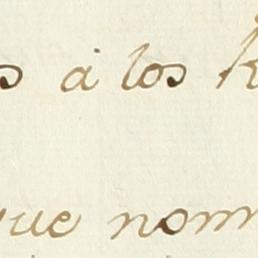 s á los
que nom